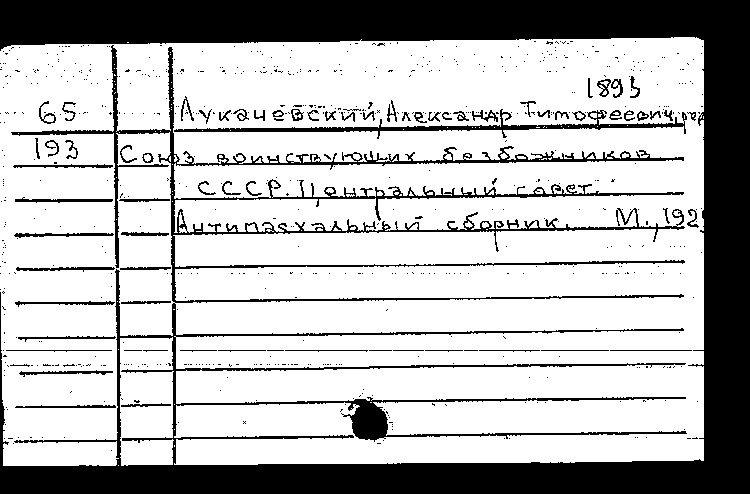 1893
65 Лукачевский, Александр Тимофеевич,
193 Союз воинствующих безбожников
СССР. Центральный совет.
Антипасхальный сборник. М., 192